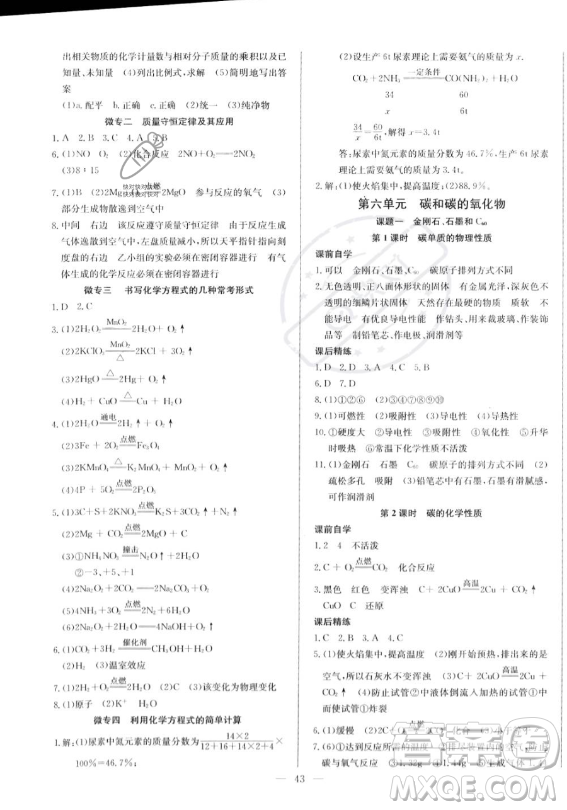 出相关物质的化学计量数与相对分子质量的乘积以及已
知量、未知量 (4)列出比例式,求解 (5)简明地写出答
案
(1)a.配平 b.正确 (2)统一 (3)纯净物
微专二 质量守恒定律及其应用
1.A 2.B 3.C 4.B 5.D
6.(1)NO NO₂ (2)化合反应
(3)8∶15
7.(1)B (2)2Mg 参与反应的氧气 (3)
部分生成物散逸到空气中
8.中间 右边 该反应遵守质量守恒定律 右边 该反应
有气体生成,生成的气体散逸到空气中,所以指针指向刻
度盘的右边 乙小组的实验必须在密闭容器进行 有气
体参加的化学反应必须在密闭容器中进行
微专三 书写化学方程式的几种常考形式
1.D 2.C
3.(1)2H₂O₂ MnO₂ 2H₂O+O₂↑
(2)2KClO₃ MnO₂ △ 2KCl+3O₂↑
(3)2HgO △ 2Hg+O₂↑
(4)H₂+CuO △ Cu+H₂O
4.(1)2H₂O 通电 2H₂↑+O₂↑
(2)3Fe+2O₂ 点燃 Fe₃O₄
(3)2KMnO₄ △ K₂MnO₄+MnO₂+O₂↑
(4)4P+5O₂ 点燃 2P₂O₅
5.(1)3C+S+2KNO₃ 点燃 K₂S+3CO₂↑+N₂↑
(2)2Mg+CO₂ 点燃 2MgO+C
(3)①NH₄NO₃ 撞击 N₂O↑+2H₂O
②-3、+5、+1
(4)2Na₂O₂+2CO₂══2Na₂CO₃+O₂
(5)4NH₃+3O₂ 点燃 2N₂+6H₂O
6.(1)CO₂+3H₂ 催化剂 CH₃OH+H₂O
(2)H₂ (3)温室效应
7.(1)2H₂+O₂ 点燃 2H₂O (2)C (3)该变化为物理变化
8.(1)原子 (2)K⁺ H₂O
微专四 利用化学方程式的简单计算
1.解:(1)尿素中氮元素的质量分数为 14×2/(12+16+14×2+4)×
100%≈46.7%;
(2)设生产6t尿素理论上需要氨气的质量为x.
CO₂+2NH₃ 一定条件 CO(NH₂)₂+H₂O
34 60
x 6t
34/x=60/6t,解得x=3.4t
答:尿素中氮元素的质量分数为46.7%,生产6t尿素
理论上需要氨气的质量为3.4t.
2.解:(1)使火焰集中,提高温度;(2)88.9%.
第六单元 碳和碳的氧化物
课题一 金刚石、石墨和C₆₀
第1课时 碳单质的物理性质
课前自学
1.可以 金刚石、石墨、C₆₀ 碳原子排列方式不同
2.无色透明、正八面体形状 有金属光泽、深灰色不
透明的细鳞片状固体 天然存在最硬 硬度小、质软
无 优良导电性 作钻头、切割玻璃、裁玻璃、装
饰品等 制铅笔芯、作电极、润滑剂等
课后精练
1.D 2.D 3.A 4.C 5.C
6.D 7.D
8.(1)①②⑥ (2)③④⑤
9.(1)可燃性 (2)吸附性 (3)导电性 (4)导热性
10.①硬度大 ②导电性 ③质软 ④吸附性 ⑤升华
时吸热 ⑥常温下化学性质不活泼
11.(1)金刚石 石墨 碳原子的排列方式不同 (2)
疏松多孔 吸附 (3)铅笔芯中含有石墨,石墨有滑腻感,
可作润滑剂
第2课时 碳的化学性质
课前自学
1.2 4 不活泼
2.C+O₂ 点燃 CO₂ 化合反应
3.黑色 红色 变浑浊 C+2CuO 高温 2Cu+CO₂↑
CuO C 还原
课后精练
1.C 2.B 3.A 4.C
5.(1)使火焰集中,提高温度 (2)刚开始预热,排出的是
空气,所以石灰水不变浑浊 (3)C+2CuO 高温 2Cu+
CO₂↑ (4)防止试管②中液体倒流入试管①,热的
试管①炸裂
6.(1)缓慢 (2)C+O₂ 点燃 CO₂
43